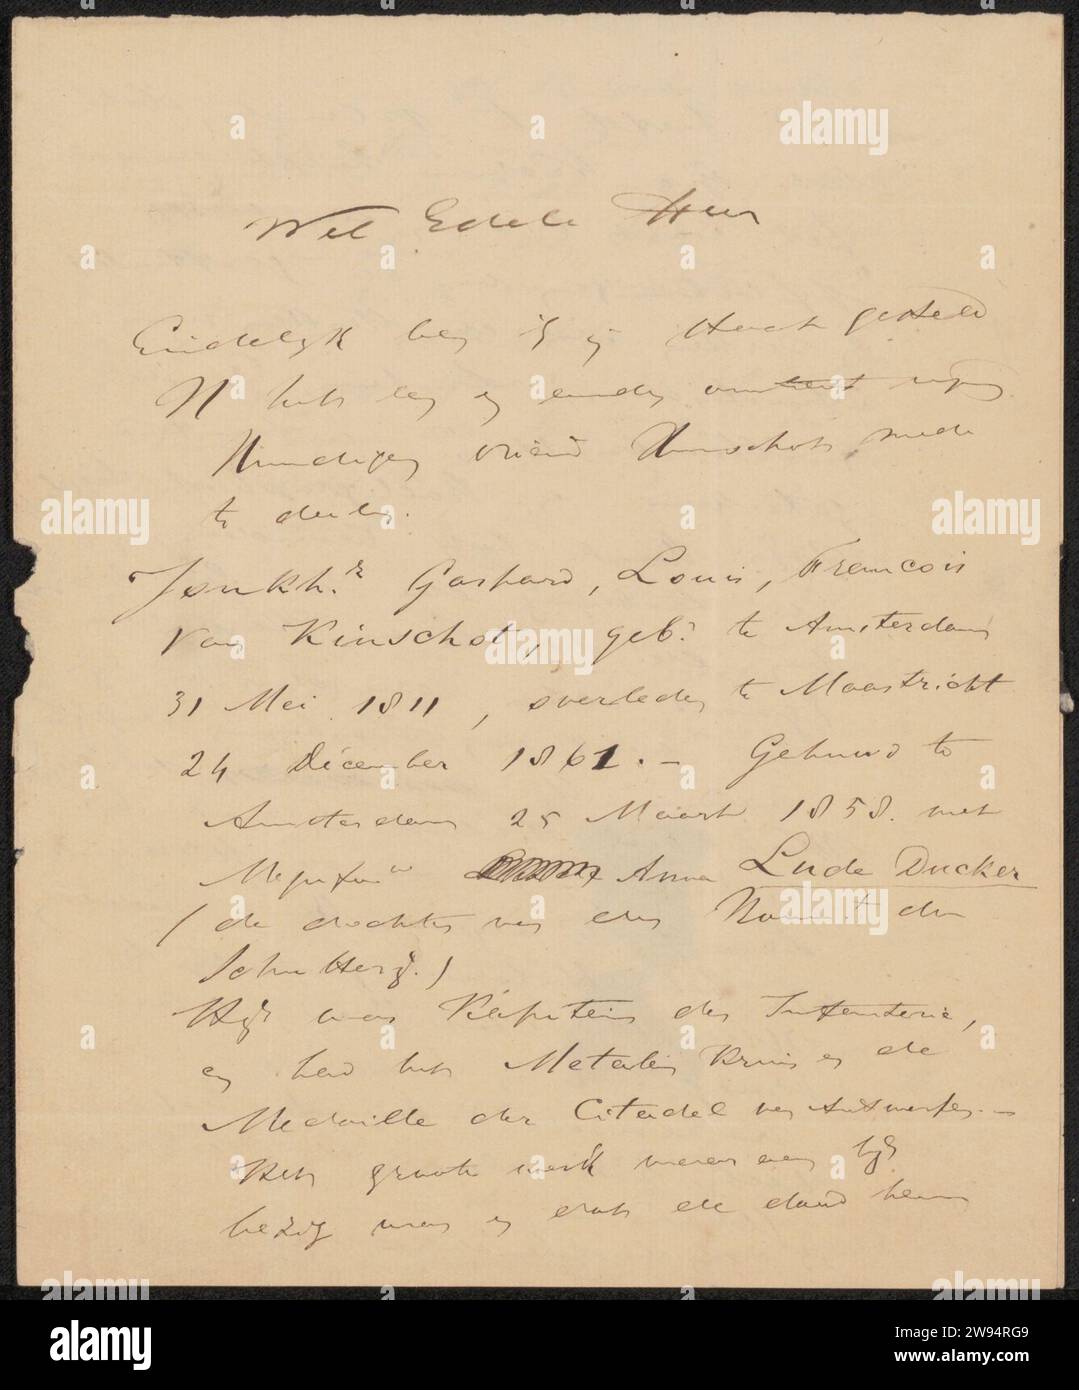 Wel Edele Heer
Eindelijk ben ik in staat gesteld
U het een en ander omtrent mijn
kundigen vriend Kinschot mede
te deelen.
Jonkhr. Gaspard, Louis, Francois
van Kinschot, geb: te Amsterdam
31 Mei 1811, overleden te Maastricht
24 December 1861. — Gehuwd te
Amsterdam 25 Maart 1858. met
Mejufw Anna Lude Ducker
(de dochter van den
Schutterij.)
Hij was Kapitein der Infanterie,
en had het Metalen Kruis en de
Medaille der Citadel van Antwerpen. —
Het groote werk waar aan hij
bezig was en dat de dood hem
alamy
Image ID: 2W94RG9
www.alamy.com